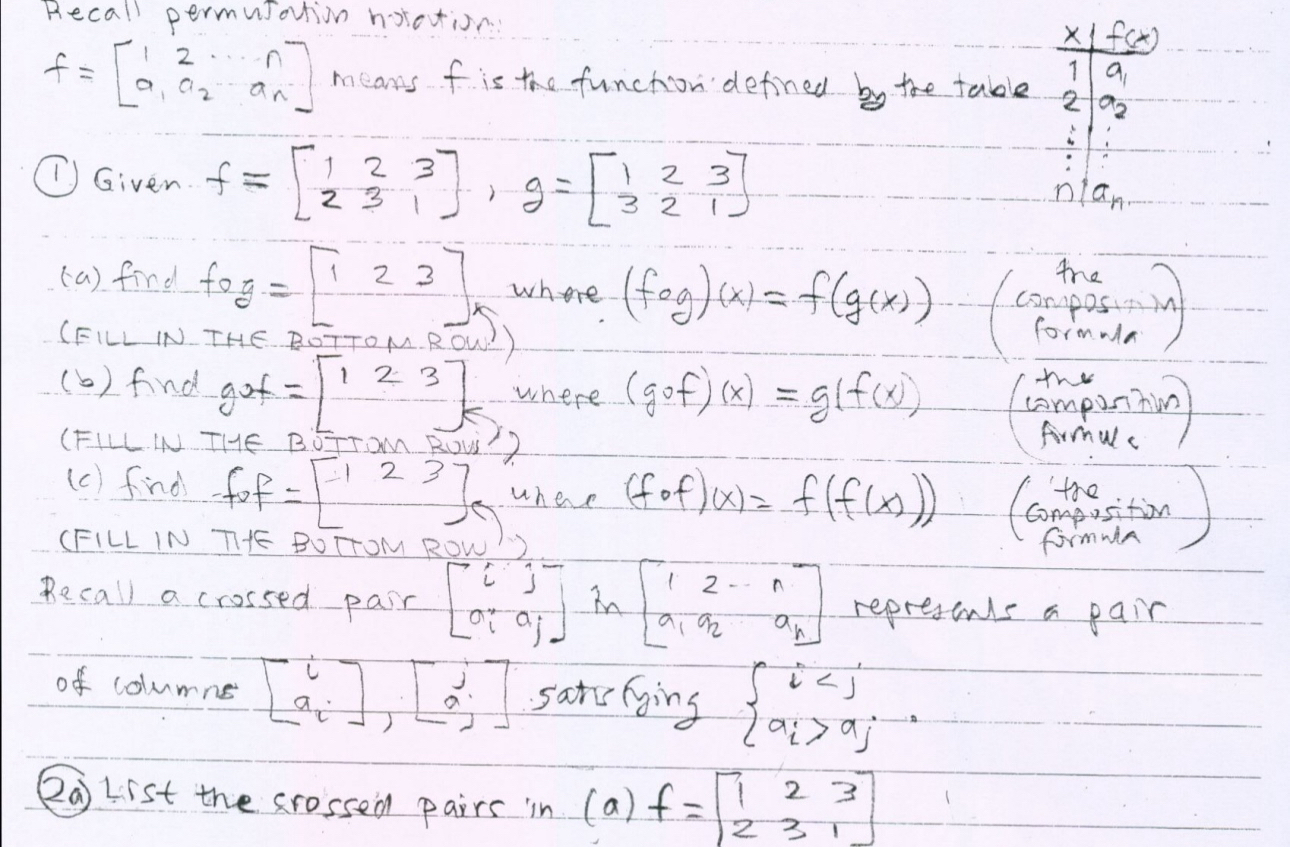 Recall permutation notation:
f = [1 2 .... n / a₁ a₂ aₙ] means f is the function defined by the table
x | f(x)
1 | a₁
2 | a₂
⋮ ⋮
n | aₙ
① Given f = [1 2 3 / 2 3 1], g = [1 2 3 / 3 2 1]
(a) find fog = [1 2 3 / ] where (fog)(x) = f(g(x)) (the composition formula)
(FILL IN THE BOTTOM ROW)
(b) find gof = [1 2 3 / ] where (gof)(x) = g(f(x)) (the composition formula)
(FILL IN THE BOTTOM ROW)
(c) find fof = [1 2 3 / ] where (fof)(x) = f(f(x)) (the composition formula)
(FILL IN THE BOTTOM ROW)
Recall a crossed pair [i j / aᵢ aⱼ] in [1 2 -- n / a₁ a₂ aₙ] represents a pair
of columns [i / aᵢ], [j / aⱼ] satisfying { i < j / aᵢ > aⱼ .
2a) List the crossed pairs in (a) f = [1 2 3 / 2 3 1]